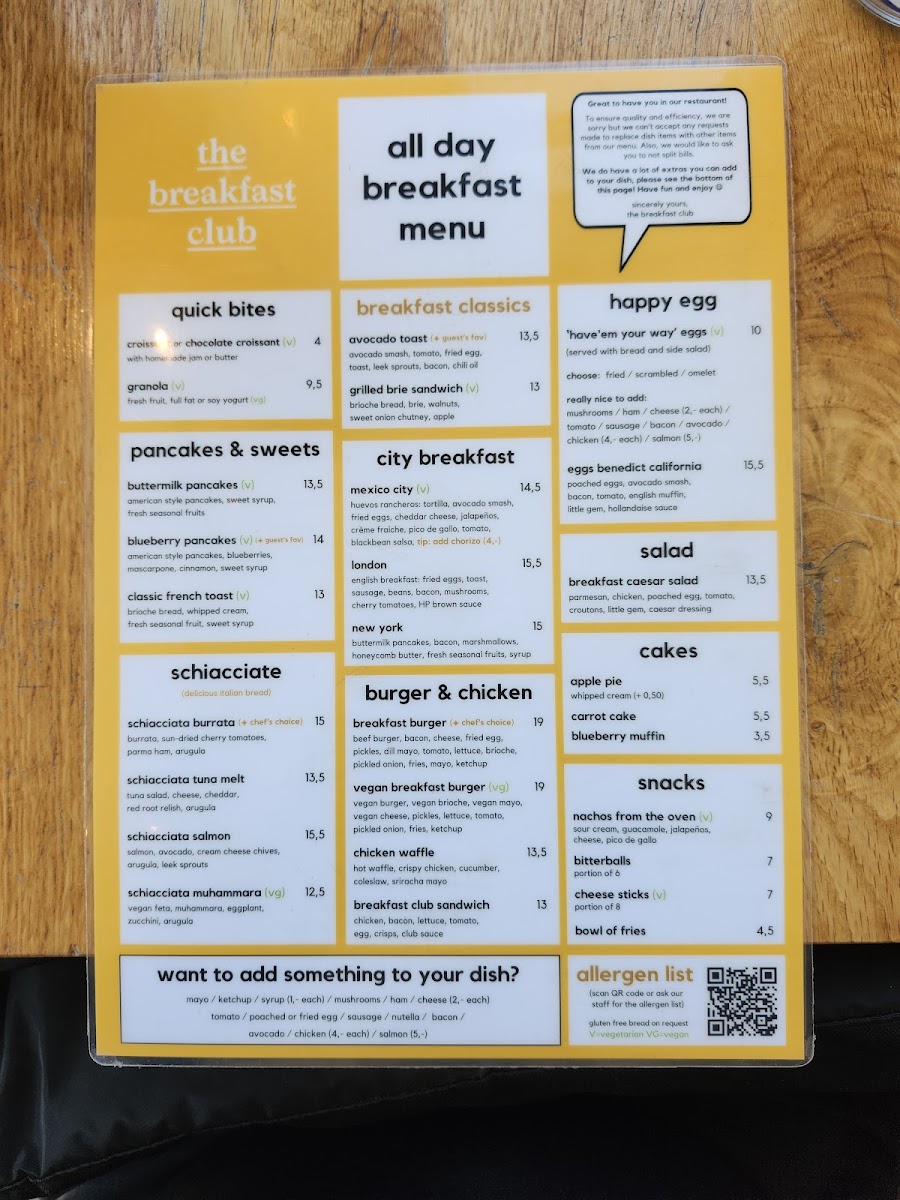 the
breakfast
club
all day
breakfast
menu
Great to have you in our restaurant!
To ensure quality and efficiency, we are
sorry but we can't accept any requests
made to replace dish items with other items
from our menu. Also, we would like to ask
you to not split bills.
We do have a lot of extras you can add
to your dish, please see the bottom of
this page! Have fun and enjoy ☺
sincerely yours,
the breakfast club
quick bites
or chocolate croissant (v) 4
with homemade jam or butter
granola (v) 9,5
fresh fruit, full fat or soy yogurt (vg)
pancakes & sweets
buttermilk pancakes (v) 13,5
american style pancakes, sweet syrup,
fresh seasonal fruits
blueberry pancakes (v) (+ guest's fav) 14
american style pancakes, blueberries,
mascarpone, cinnamon, sweet syrup
classic french toast (v) 13
brioche bread, whipped cream,
fresh seasonal fruit, sweet syrup
schiacciate
(delicious italian bread)
schiacciata burrata (+ chef's choice) 15
burrata, sun-dried cherry tomatoes,
parma ham, arugula
schiacciata tuna melt 13,5
tuna salad, cheese, cheddar,
red root relish, arugula
schiacciata salmon 15,5
salmon, avocado, cream cheese chives,
arugula, leek sprouts
schiacciata muhammara (vg) 12,5
vegan feta, muhammara, eggplant,
zucchini, arugula
breakfast classics
avocado toast (+ guest's fav) 13,5
avocado smash, tomato, fried egg,
toast, leek sprouts, bacon, chili oil
grilled brie sandwich (v) 13
brioche bread, brie, walnuts,
sweet onion chutney, apple
city breakfast
mexico city (v) 14,5
huevos rancheros: tortilla, avocado smash,
fried eggs, cheddar cheese, jalapeños,
crème fraiche, pico de gallo, tomato,
blackbean salsa, tip: add chorizo (4,-)
london 15,5
english breakfast: fried eggs, toast,
sausage, beans, bacon, mushrooms,
cherry tomatoes, HP brown sauce
new york 15
buttermilk pancakes, bacon, marshmallows,
honeycomb butter, fresh seasonal fruits, syrup
burger & chicken
breakfast burger (+ chef's choice) 19
beef burger, bacon, cheese, fried egg,
pickles, dill mayo, tomato, lettuce, brioche,
pickled onion, fries, mayo, ketchup
vegan breakfast burger (vg) 19
vegan burger, vegan brioche, vegan mayo,
vegan cheese, pickles, lettuce, tomato,
pickled onion, fries, ketchup
chicken waffle 13,5
hot waffle, crispy chicken, cucumber,
coleslaw, sriracha mayo
breakfast club sandwich 13
chicken, bacon, lettuce, tomato,
egg, crisps, club sauce
happy egg
'have'em your way' eggs (v) 10
(served with bread and side salad)
choose: fried / scrambled / omelet
really nice to add:
mushrooms / ham / cheese (2,- each) /
tomato / sausage / bacon / avocado /
chicken (4,- each) / salmon (5,-)
eggs benedict california 15,5
poached eggs, avocado smash,
bacon, tomato, english muffin,
little gem, hollandaise sauce
salad
breakfast caesar salad 13,5
parmesan, chicken, poached egg, tomato,
croutons, little gem, caesar dressing
cakes
apple pie 5,5
whipped cream (+ 0,50)
carrot cake 5,5
blueberry muffin 3,5
snacks
nachos from the oven (v) 9
sour cream, guacamole, jalapeños,
cheese, pico de gallo
bitterballs 7
portion of 6
cheese sticks (v) 7
portion of 8
bowl of fries 4,5
want to add something to your dish?
mayo / ketchup / syrup (1,- each) / mushrooms / ham / cheese (2,- each)
tomato / poached or fried egg / sausage / nutella / bacon /
avocado / chicken (4,- each) / salmon (5,-)
allergen list
(scan QR code or ask our
staff for the allergen list)
gluten free bread on request
V=vegetarian VG=vegan